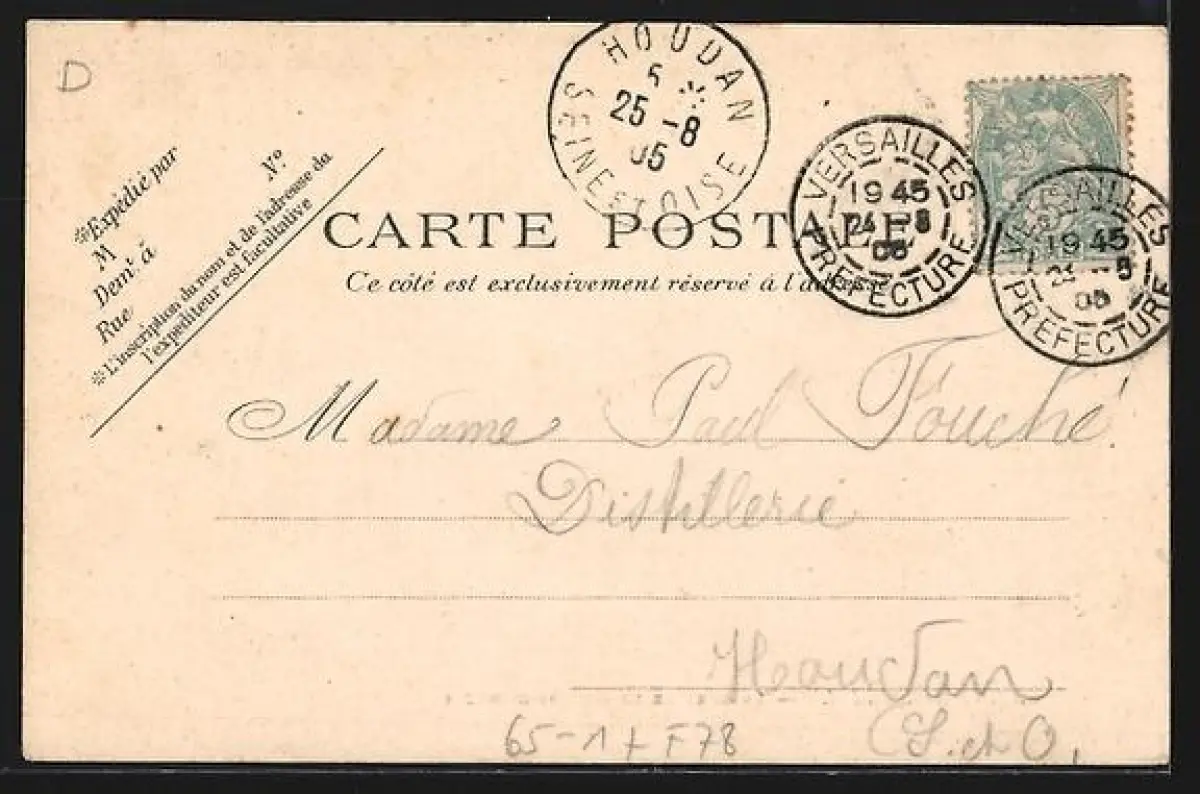 D
HOUDAN
5
25 -8
05
SEINE ET OISE
VERSAILLES
19 45
24 -8
05
PREFECTURE
VERSAILLES
19 45
PREFECTURE
05
N°
*Expédié par
M
Demt à
Rue
*L'inscription du nom et de l'adresse de
l'expéditeur est facultative
CARTE POSTALE
Ce côté est exclusivement réservé à l'adresse
Madame Paul Fouché
Distillerie
Houdan
(S. et O.
65-1 + F78